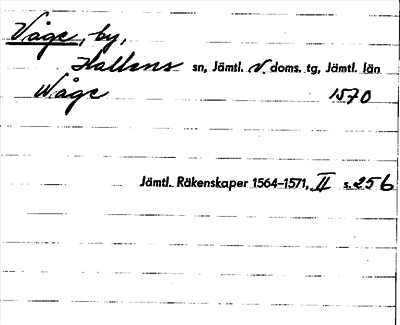 Våge, by,
Hallens sn, Jämtl. V. doms. tg, Jämtl. län
Wåge 1570
Jämtl. Räkenskaper 1564–1571, II s. 256